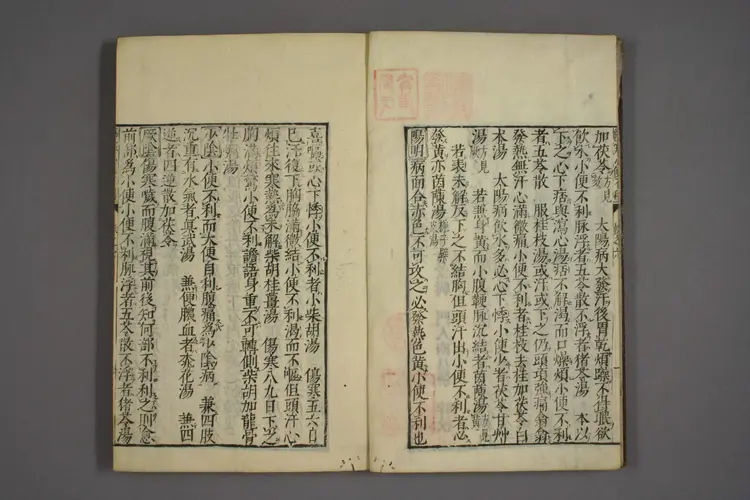 加茯苓方見 太陽病大發汗後胃乾煩躁不得眠欲
飲水小便不利脉浮者五苓散不浮者猪苓湯 本以
下之心下痞與瀉心湯痞不解渴而口燥煩小便不利
者五苓散 服桂枝湯或汗或下之仍頭項強痛翕翕
發熱無汗心滿微痛小便不利者桂枝去桂加茯苓白
术湯 太陽病飲水多必心下悸小便少者茯苓甘艸
湯方見 若兼身黄而小腹鞕脉沉結者茵蔯湯方見
若表未解反下之不結胸但頭汗出小便不利者必
發黄亦茵蔯湯
陽明病面合赤色不可攻之必發熱色黄小便不利也
喜嘔或心下悸小便不利者小柴胡湯 傷寒五六日
已汗復下胸脇滿微結小便不利渴而不嘔但頭汗心
煩往來寒熱爲未解柴胡桂薑湯 傷寒八九日下之
胸滿煩驚小便不利譫語身重不可轉側柴胡加龍骨
牡蠣湯
少陰小便不利而大便自利腹痛爲少陰病 兼四肢
沉重有水氣者真武湯 兼便膿血者桃花湯 兼四
逆者四逆散加茯苓
厥陰傷寒噦而腹滿視其前後知何部不利利之則愈
前部爲小便小便不利脉浮者五苓散不浮者猪苓湯